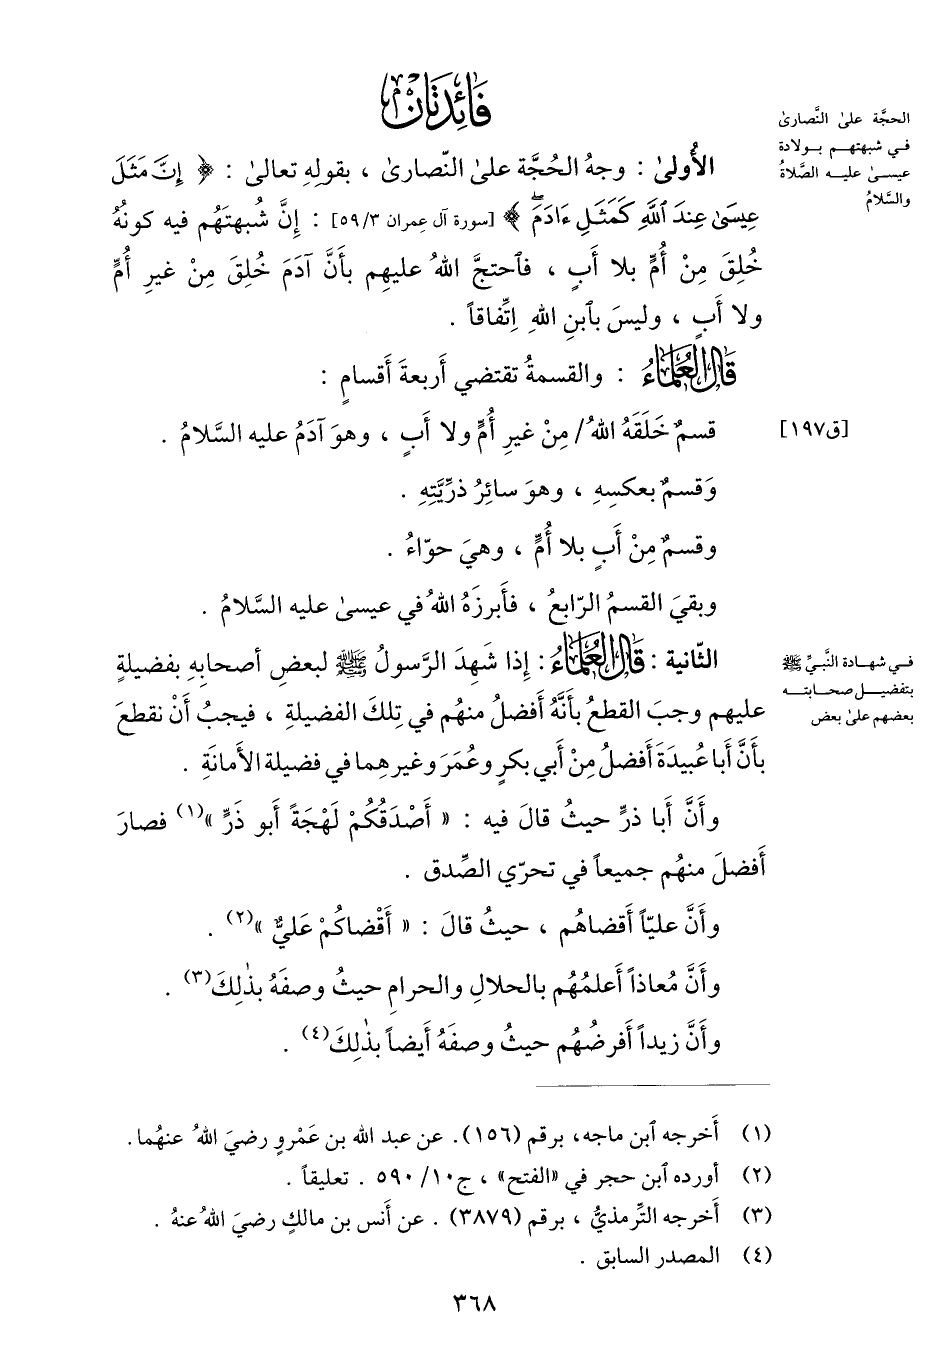 فَائِدَتَانِ
الحجَّة علىٰ النَّصارىٰ
في شبهتهم بولادة
عيسىٰ عليه الصَّلاةُ
والسَّلامُ
الأُولىٰ : وجهُ الحُجَّة علىٰ النّصارىٰ ، بقولِهِ تعالىٰ : ﴿ إِنَّ مَثَلَ
عِيسَىٰ عِندَ اللَّهِ كَمَثَلِ ءَادَمَۖ ﴾ [سورة آل عِمران ٣/ ٥٩] : إنَّ شُبهتَهُم فيه كونُهُ
خُلِقَ مِنْ أُمٍّ بلا أَبٍ ، فٱحتجَّ اللهُ عليهِم بأَنَّ آدَمَ خُلِقَ مِنْ غيرِ أُمٍّ
ولا أَبٍ ، وليسَ بٱبنِ اللهِ اتِّفاقاً .
قَالَ الْعُلَمَاءُ : والقسمةُ تقتضي أَربعةَ أَقسامٍ :
[ق١٩٧]
قسمٌ خَلَقَهُ اللهُ/ مِنْ غيرِ أُمٍّ ولا أَبٍ ، وهوَ آدَمُ عليه السَّلامُ .
وَقسمٌ بعكسِهِ ، وهوَ سائِرُ ذرِّيَّتِهِ .
وقسمٌ مِنْ أَبٍ بلا أُمٍّ ، وهيَ حوّاءُ .
وبقيَ القسمُ الرّابعُ ، فأَبرزَهُ اللهُ في عيسىٰ عليه السَّلامُ .
في شهادة النَّبيِّ ﷺ
بتفضيل صحابته
بعضهم علىٰ بعض
الثّانية : قَالَ الْعُلَمَاءُ : إذا شَهِدَ الرَّسولُ ﷺ لبعضِ أصحابِهِ بفضيلةٍ
عليهِم وجبَ القطعُ بأَنَّهُ أَفضلُ منهُم في تِلكَ الفضيلةِ ، فيجبُ أَنْ نقطعَ
بأَنَّ أَبا عُبيدَةَ أَفضلُ مِنْ أَبي بكرٍ وعُمَرَ وغيرِهِما في فضيلة الأَمانَةِ .
وأَنَّ أَبا ذرٍّ حيثُ قالَ فيه : « أَصْدَقُكُمْ لَهْجَةً أَبو ذَرٍّ »(١) فصارَ
أَفضلَ منهُم جميعاً في تحرّي الصِّدق .
وأَنَّ عليّاً أَقضاهُم ، حيثُ قالَ : « أَقْضاكُمْ عَليٌّ »(٢) .
وأَنَّ مُعاذاً أَعلمُهُم بالحلالِ والحرامِ حيثُ وصفَهُ بذٰلِكَ(٣) .
وأَنَّ زيداً أَفرضُهُم حيثُ وصفَهُ أَيضاً بذٰلِكَ(٤) .
(١) أَخرجه ٱبن ماجه، برقم (١٥٦). عن عبد الله بن عَمْرٍو رضيَ اللهُ عنهُما.
(٢) أورده ٱبن حجر في «الفتح» ، ج١٠/ ٥٩٠ . تعليقاً .
(٣) أَخرجه التِّرمذيُّ ، برقم (٣٨٧٩) . عن أَنس بن مالكٍ رضيَ اللهُ عنهُ .
(٤) المصدر السابق .
٣٦٨